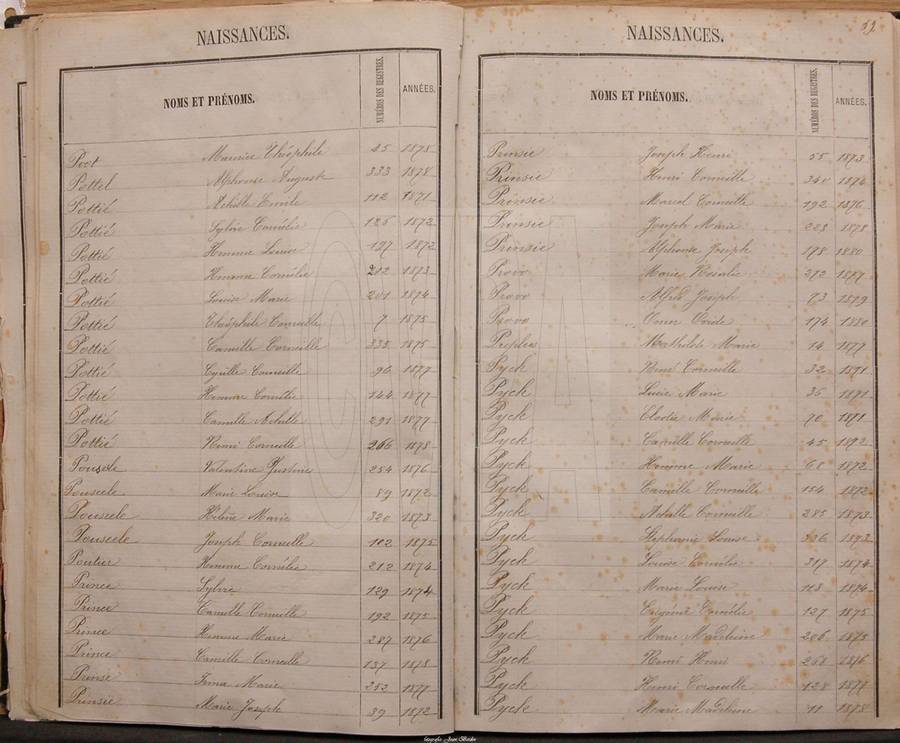 NAISSANCES.
NOMS ET PRÉNOMS. NUMÉROS DES REGISTRES. ANNÉES.
Poot Maurice Théophile 45 1878
Pottel Alphonse August 333 1878
Pottié Achille Emile 112 1871
Pottié Sylvie Cornélie 125 1872
Pottié Emma Louise 127 1872
Pottié Emma Cornélie 212 1873
Pottié Louise Marie 201 1874
Pottié Théophile Corneille 7 1875
Pottié Camille Corneille 335 1875
Pottié Cyrille Corneille 96 1877
Pottié Emma Cornélie 144 1877
Pottié Camille Achille 291 1877
Pottié Remi Corneille 266 1878
Pousele Valentine Justine 254 1876
Pouseele Marie Louise 89 1872
Pouseele Hélène Marie 320 1873
Pouseele Joseph Corneille 112 1875
Poutier Emma Cornélie 212 1874
Prince Sylvie 129 1874
Prince Camille Corneille 192 1875
Prince Emma Marie 287 1876
Prince Camille Corneille 137 1878
Prinse Irma Marie 253 1877
Prinsie Marie Joseph 39 1872
NAISSANCES. 59
NOMS ET PRÉNOMS. NUMÉROS DES REGISTRES. ANNÉES.
Prinsie Joseph Henri 55 1873
Prinsie Henri Corneille 340 1874
Prinsie Marcel Corneille 192 1876
Prinsie Joseph Marie 223 1878
Prinsie Alphonse Joseph 178 1880
Provo Marie Rosalie 272 1877
Provo Alfred Joseph 73 1879
Provo Omer 174 1880
Mathilde Marie 14 1877
Pyck Remi Corneille 32 1871
Pyck Lucie Marie 36 1871
Pyck Elodie Marie 70 1871
Pyck Camille Corneille 45 1872
Pyck Emma Marie 68 1872
Pyck Camille Corneille 154 1872
Pyck Achille Corneille 285 1873
Pyck Stéphanie Louise 336 1873
Pyck Louise Cornélie 317 1874
Pyck Marie Louise 113 1874
Pyck Eugénie Cornélie 127 1875
Pyck Marie Madeleine 206 1875
Pyck Remi Henri 261 1876
Pyck Henri Corneille 128 1877
Pyck Marie Madeleine 11 1878